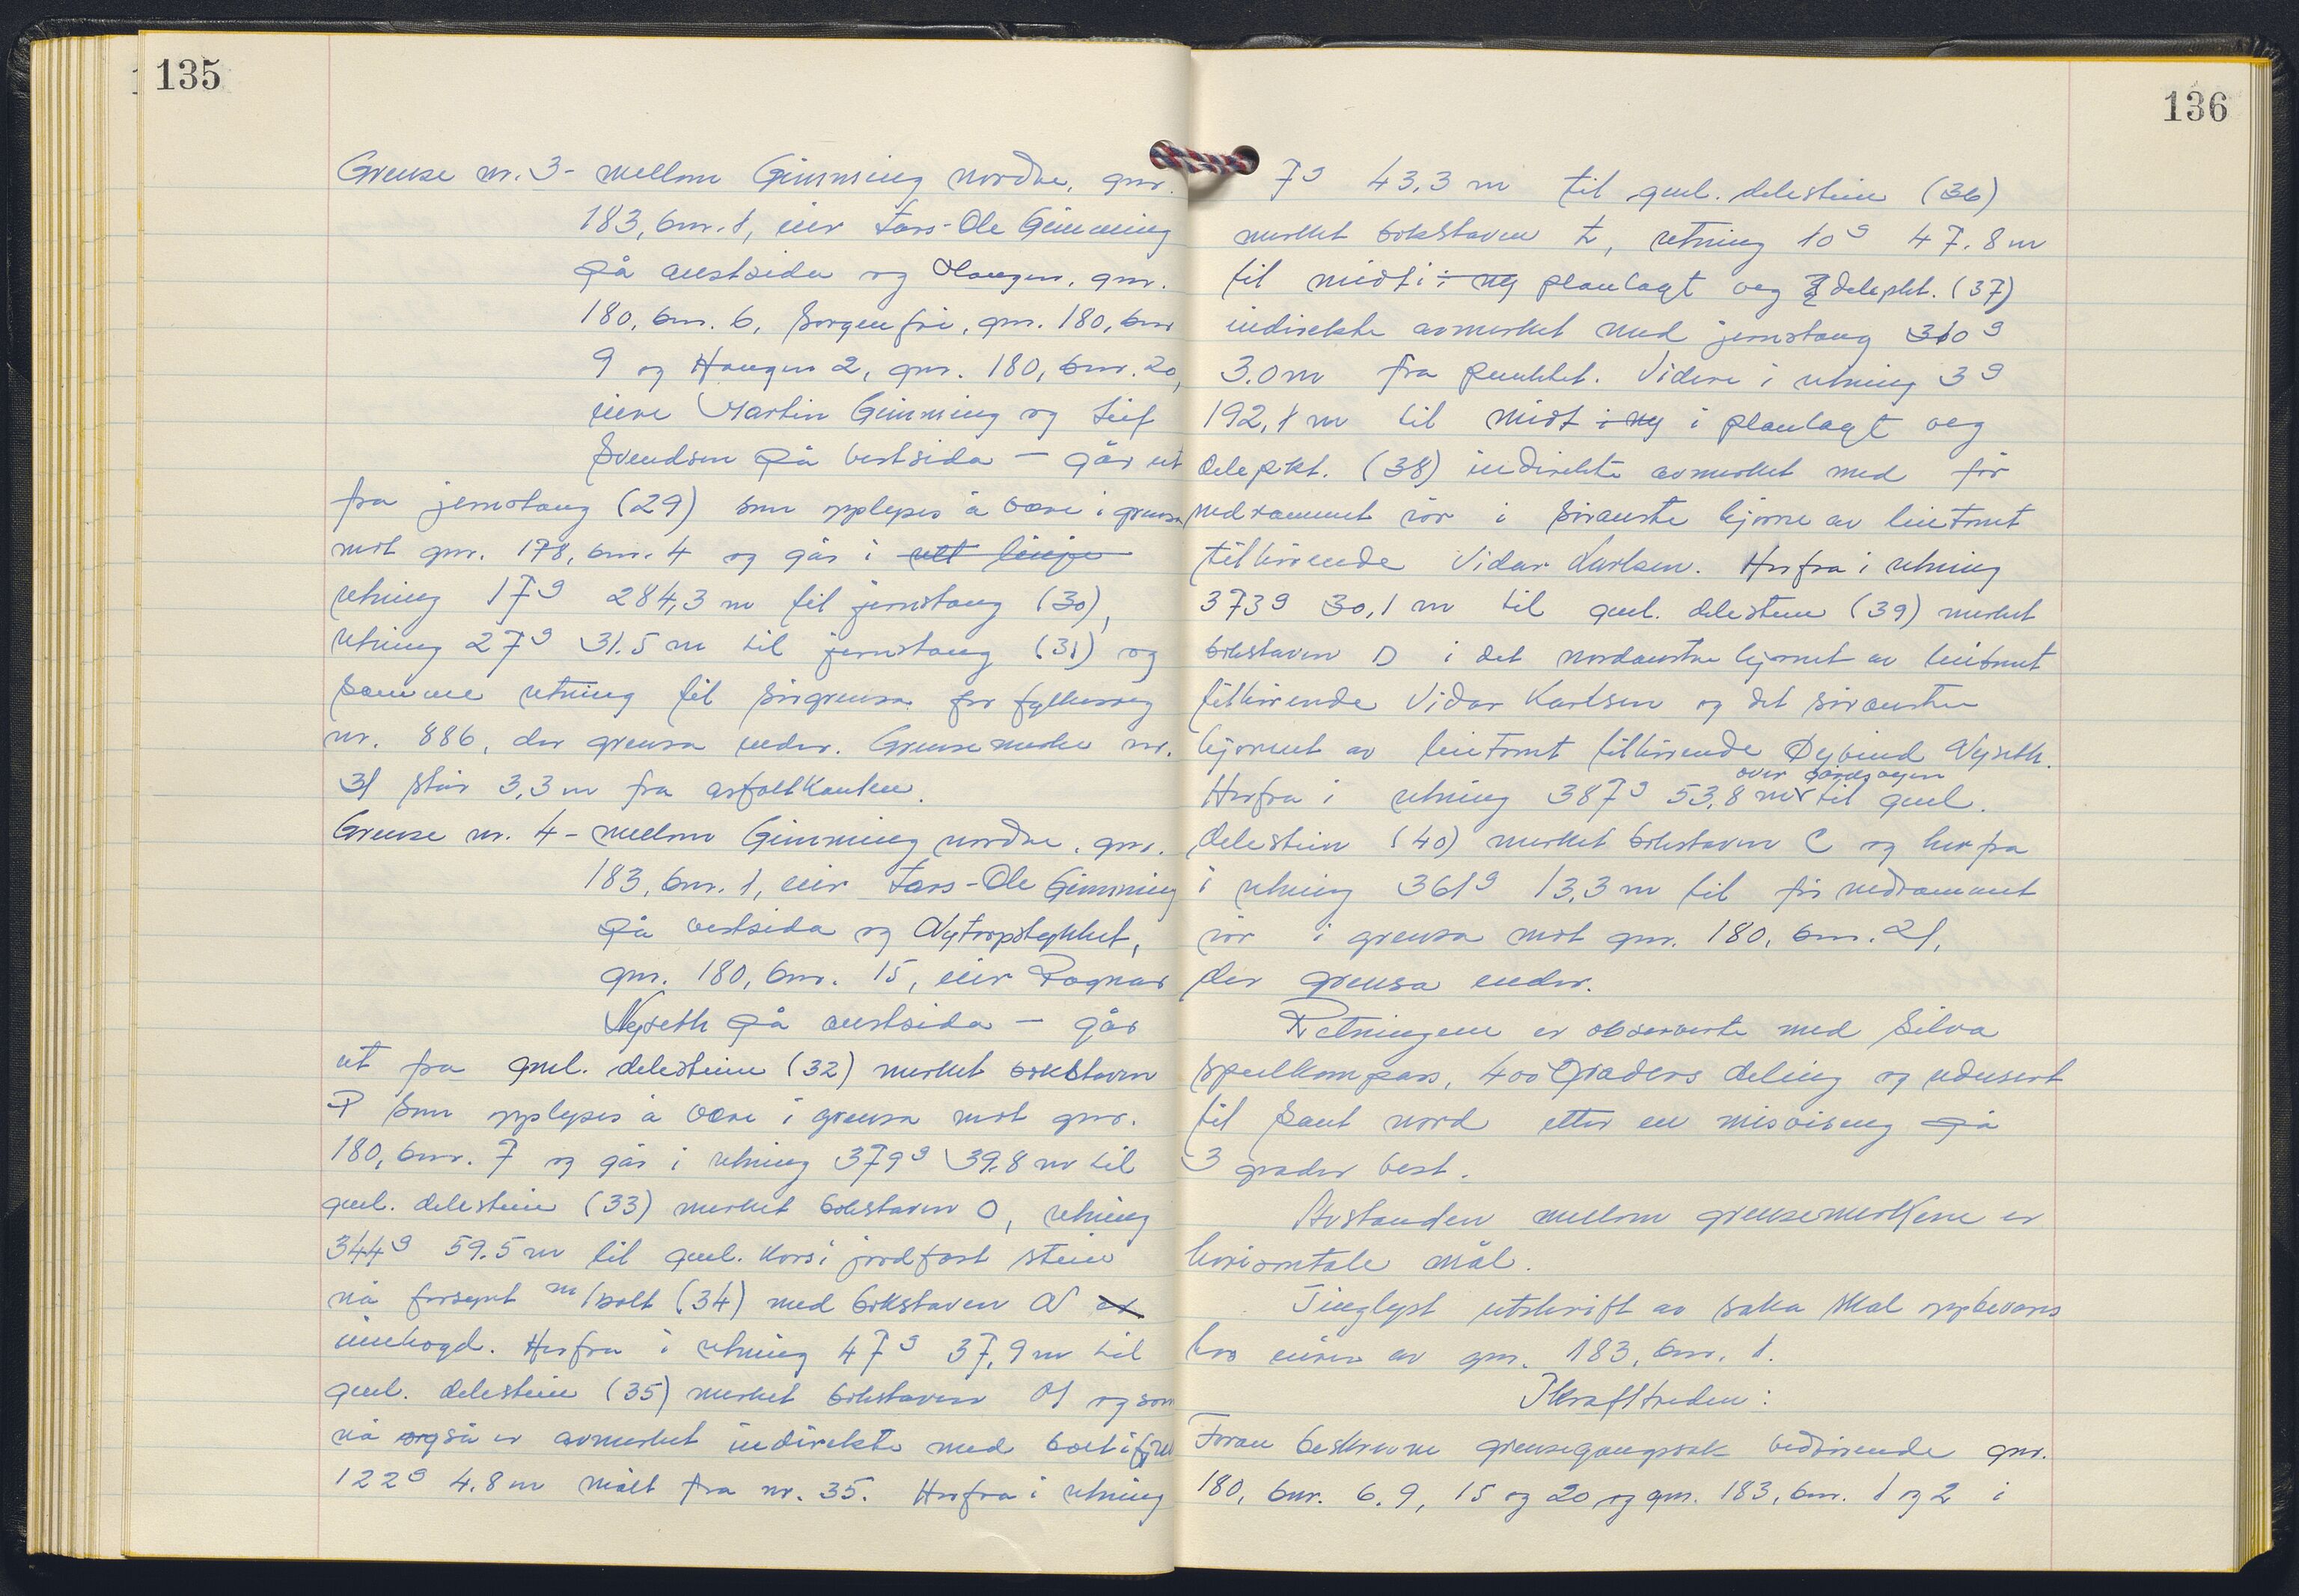 135
Grense nr. 3 - mellom Gimming nordre, gnr.
183, bnr. 1, eier Lars-Ole Gimming
på austsida og Haugen, gnr.
180, bnr. 6, Sorgenfri, gnr. 180, bnr
9 og Haugen 2, gnr. 180, bnr. 20,
eiere Martin Gimming og Leif
Svendsen på vestsida - går ut
fra jernstang (29) som opplyses å være i grensa
mot gnr. 178, bnr. 4 og går i rett linje
retning 17g 284,3 m til jernstang (30),
retning 27g 31.5 m til jernstang (31) og
samme retning til sørgrensa for fylkesveg
nr. 886, der grensa ender. Grensemerke nr.
31 står 3,3 m fra asfaltkanten.
Grense nr. 4 - mellom Gimming nordre, gnr.
183, bnr. 1, eier Lars-Ole Gimming
på vestsida og Nytorpstykket,
gnr. 180, bnr. 15, eier Ragnar
Nyseth på austsida - går
ut fra gml. delestein (32) merket bokstaven
P som opplyses å være i grensa mot gnr.
180, bnr. 7 og går i retning 379g 39.8 m til
gml. delestein (33) merket bokstaven O, retning
344g 59.5 m til gml. kors i jordfast stein
nå forsynt m/bolt (34) med bokstaven N er
innhogd. Herfra i retning 47g 37,9 m til
gml. delestein (35) merket bokstaven M og som
nå også er avmerket indirekte med bolt i fjell
122g 4.8 m målt fra nr. 35. Herfra i retning
136
7g 43.3 m til gml. delestein (36)
merket bokstaven L, retning 10g 47.8 m
til midt i i ny planlagt veg delepkt. (37)
indirekte avmerket med jernstang 310g
3.0 m fra punktet. Videre i retning 3g
192,1 m til midt i ny i planlagt veg
delepkt. (38) indirekte avmerket med før
nedrammet rør i søraustre hjørne av leietomt
tilhørende Vidar Karlsen. Herfra i retning
373g 30,1 m til gml. delestein (39) merket
bokstaven D i det nordaustre hjørnet av leietomt
tilhørende Vidar Karlsen og det søraustre
hjørnet av leietomt tilhørende Øyvind Nyseth.
over gårdsvegen
Herfra i retning 387g 53,8 m til gml.
delestein (40) merket bokstaven C og herfra
i retning 361g 13,3 m til før nedrammet
rør i grensa mot gnr. 180, bnr. 21,
der grensa ender.
Retningene er observerte med Silva
speilkompass, 400 graders deling og redusert
til sant nord etter en misvisning på
3 grader vest.
Avstanden mellom grensemerkene er
horisontale mål.
Tinglyst utskrift av saka skal oppbevares
hos eieren av gnr. 183, bnr. 1.
Ikrafttreden:
Foran beskrevne grensegangssak vedrørende gnr.
180, bnr. 6. 9, 15 og 20 og gnr. 183, bnr. 1 og 2 i